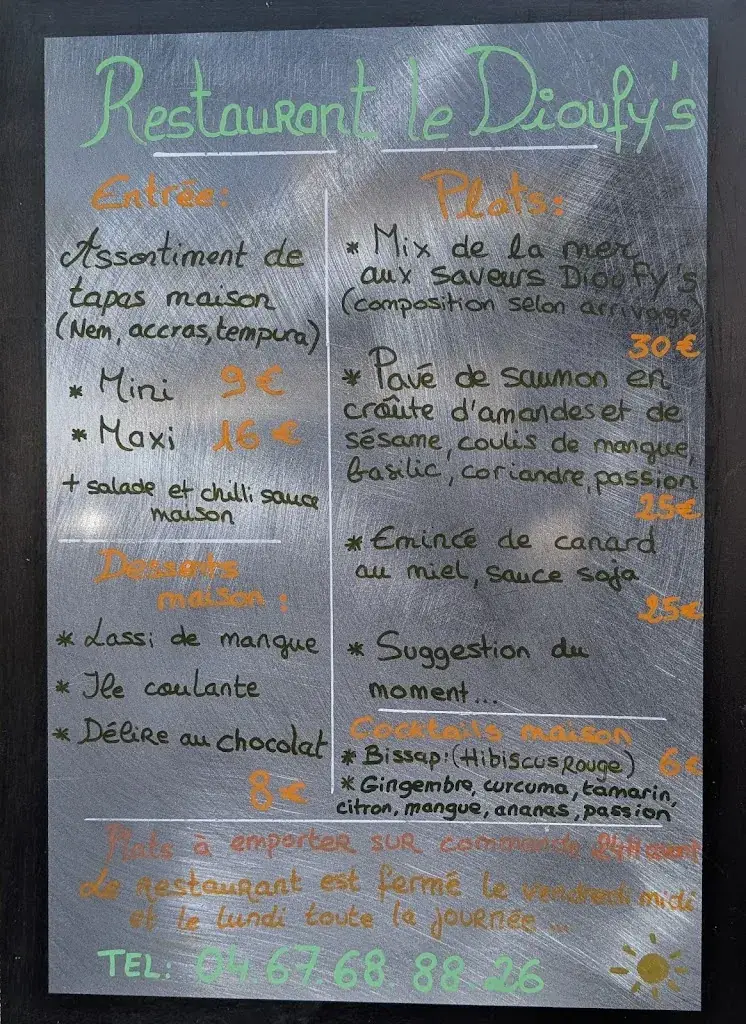 Restaurant le Dioufy's
Entrée:
Assortiment de
tapas maison
(Nem, accras, tempura)
* Mini 9€
* Maxi 16€
+ salade et chilli sauce
maison
Desserts
maison :
* Lassi de mangue
* Ile coulante
* Délire au chocolat
8€
Plats:
* Mix de la mer
aux saveurs Dioufy's
(composition selon arrivage)
30€
* Pavé de saumon en
croûte d'amandes et de
sésame, coulis de mangue,
basilic, coriandre, passion
25€
* Emincé de canard
au miel, sauce soja
25€
* Suggestion du
moment...
Cocktails maison
* Bissap: (Hibiscus Rouge) 6€
* Gingembre, curcuma, tamarin,
citron, mangue, ananas, passion
Plats à emporter sur commande 24H avant
Le restaurant est fermé le vendredi midi
et le lundi toute la journée ...
TEL: 04.67.68.88.26